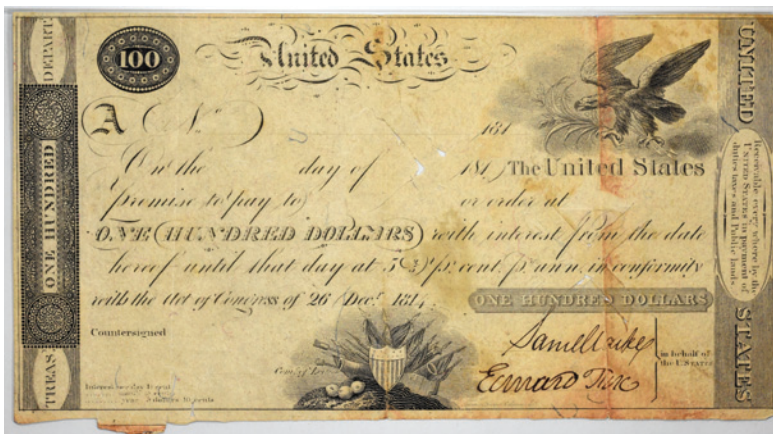 DEPART.
TREAS.
ONE HUNDRED
100
United States
A No.
181
On the day of 181 The United States
promise to pay to or order at
ONE (HUNDRED DOLLARS) with interest from the date
hereof until that day at 5⅖ pr. cent. pr. ann. in conformity
with the Act of Congress of 26 Decr. 1814.
ONE HUNDRED DOLLARS
Countersigned
Edward
in behalf of
the U.STATES
Interest per day
UNITED STATES
Receivable every where by the
UNITED STATES in payment of
duties taxes and Public lands